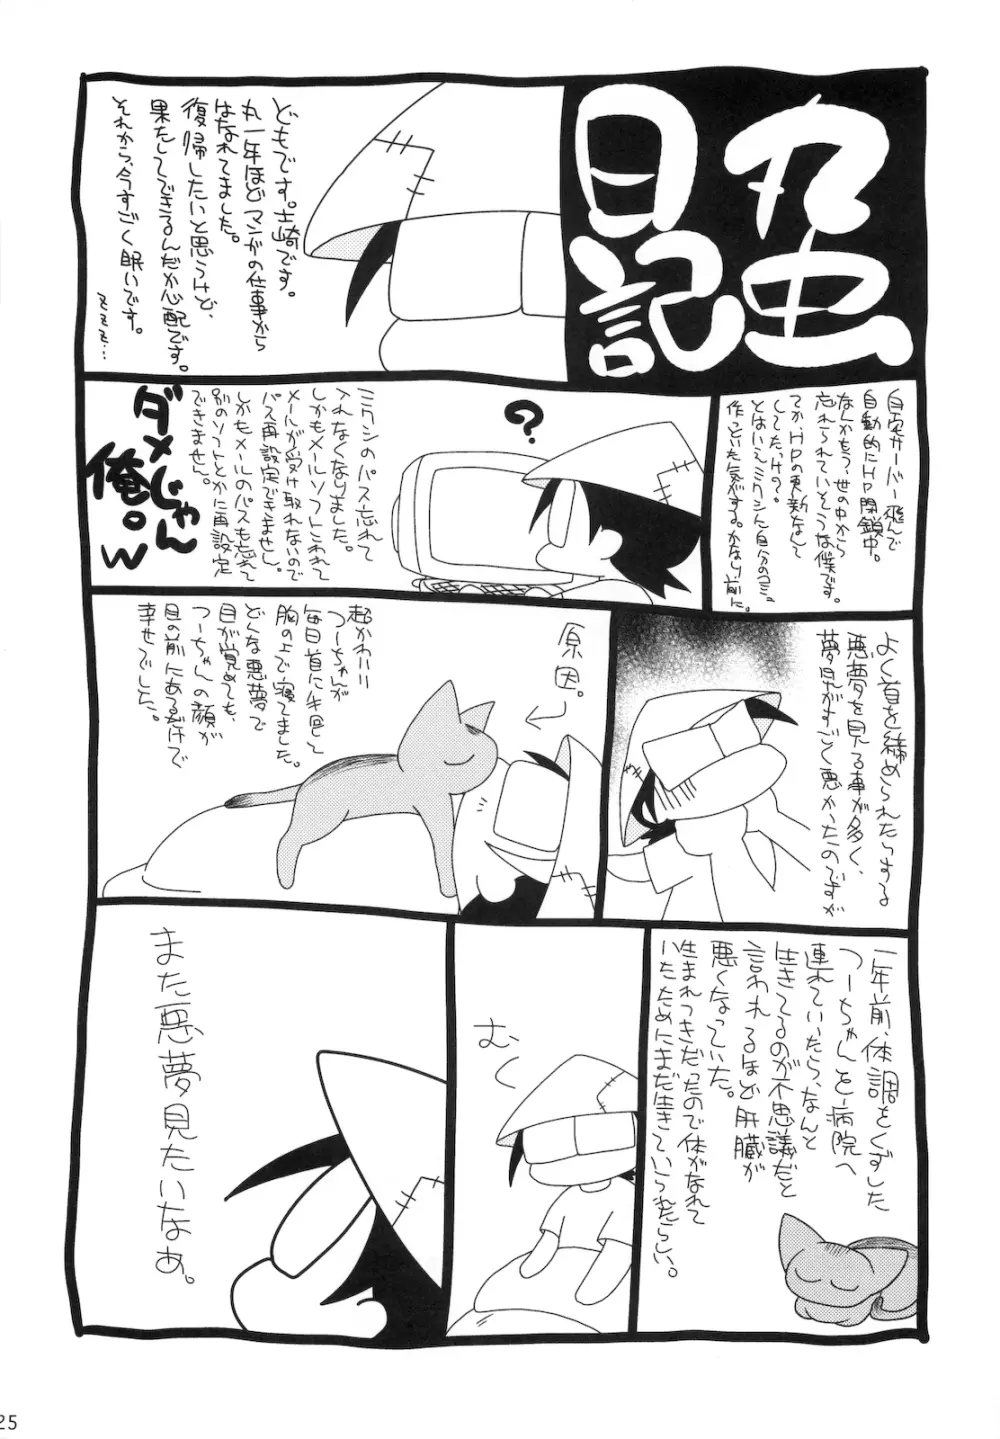 虫
日記
どもです。士崎です。
丸一年ほどマンガの仕事から
はなれてました。
復帰したいと思うけど、
果たしてできるんだか心配です。
それから、今すごく眠いです。
自宅サーバー飛んで
自動的にHP閉鎖中。
なんかもう、世の中から
忘れられていそうな候です。
てか、HPの更新なんて
してたっけ?
とはいえミクシに自分のコミュ
作っといた気がする。かなり前に。
?
ミクシのパス忘れて
入れなくなりました。
しかもメールソフトこわれて
メールが受け取れないので
パス再設定できません。
しかもメールのパスも忘れて
別のソフトとかに再設定
できません。
ダメじゃん
俺。w
よく首を締められたりする
悪夢を見る事が多く、
夢見がすごく悪かったのですが
原因。
超かわいい
つーちゃんが
毎日首に手を回して
胸の上で寝てました。
どんな悪夢で
目が覚めても、
つーちゃんの顔が
目の前にあるだけで
幸せでした。
一年前、体調をくずした
つーちゃんを病院へ
連れていったら、なんと
生きてるのが不思議だと
言われるほど肝臓が
悪くなっていた。
生まれつきだったので体がなれて
いたためにまだ生きていられたらしい。
むく
また悪夢見たいなぁ。
25